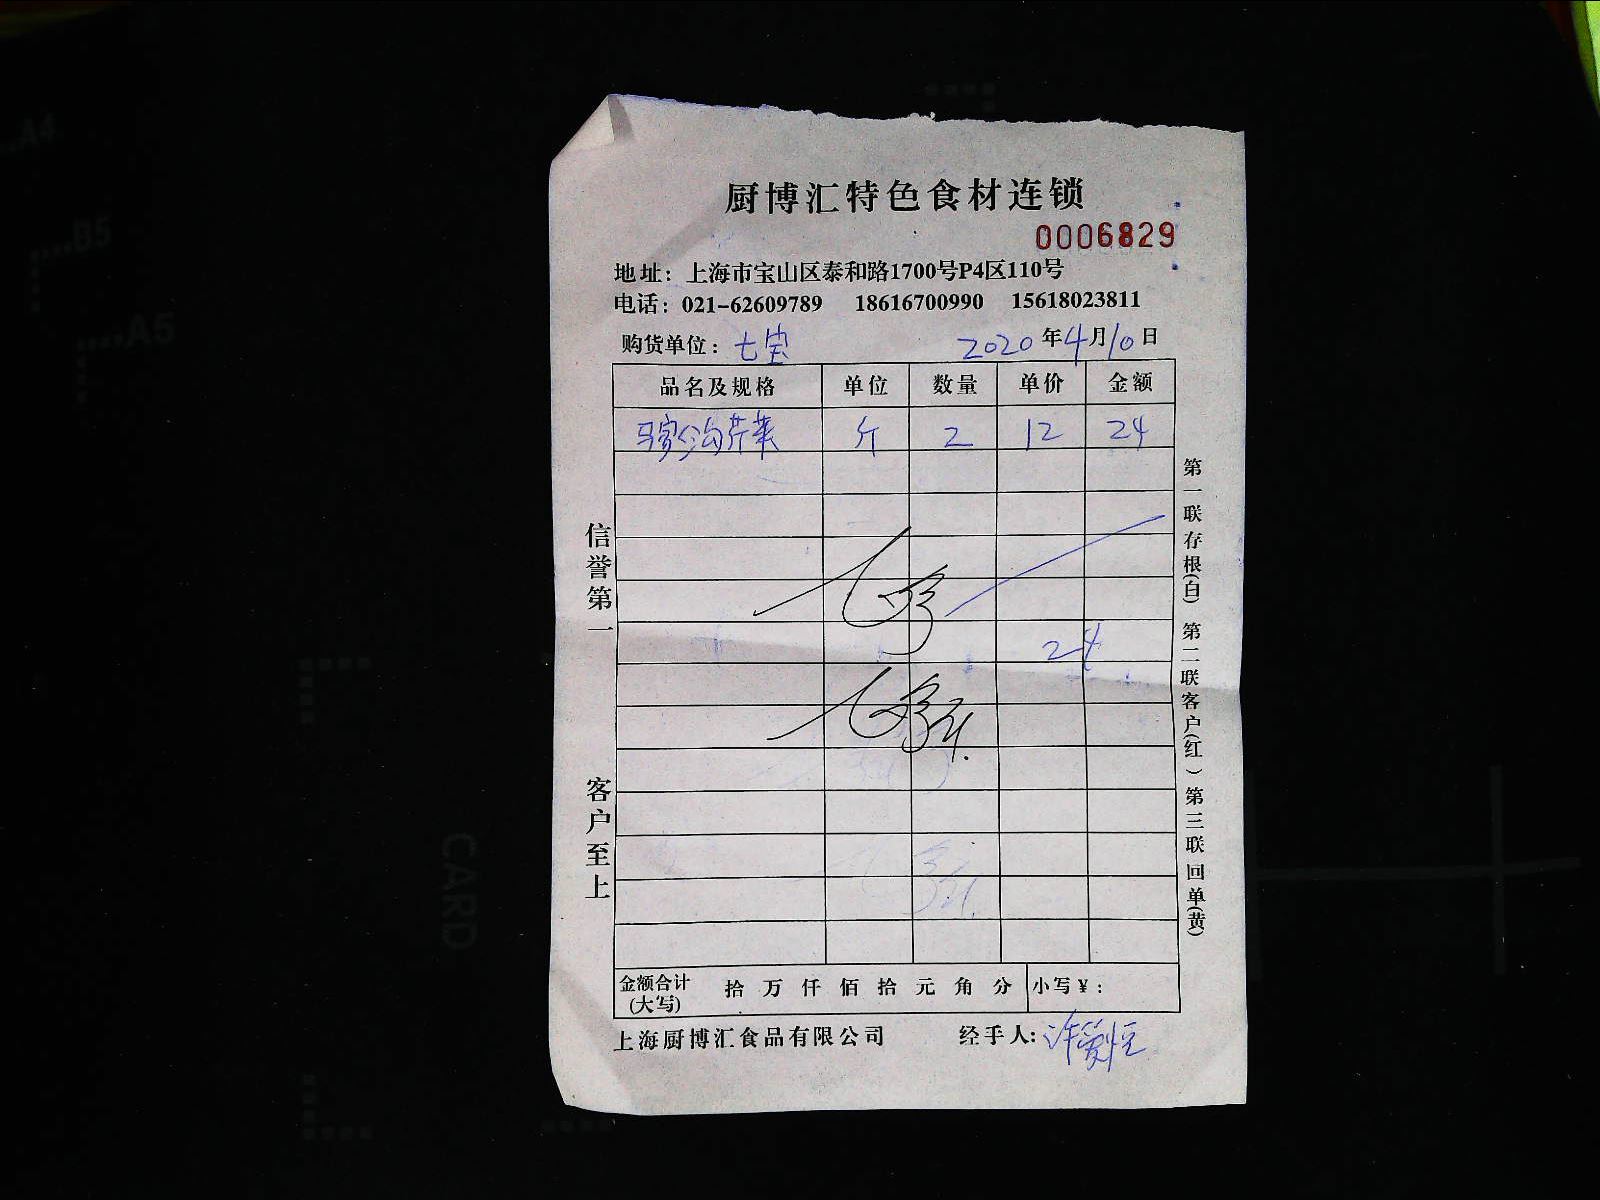 厨博汇特色食材连锁
0006829
地址：上海市宝山区泰和路1700号P4区110号
电话：021-62609789 18616700990 15618023811
购货单位：七宝 2020年4月10日
品名及规格 单位 数量 单价 金额
马家沟芹菜 斤 2 12 24
24
信誉第一 客户至上
第一联存根(白) 第二联客户(红) 第三联回单(黄)
金额合计(大写) 拾 万 仟 佰 拾 元 角 分 小写￥：
上海厨博汇食品有限公司 经手人:
A4
B5
A5
CARD